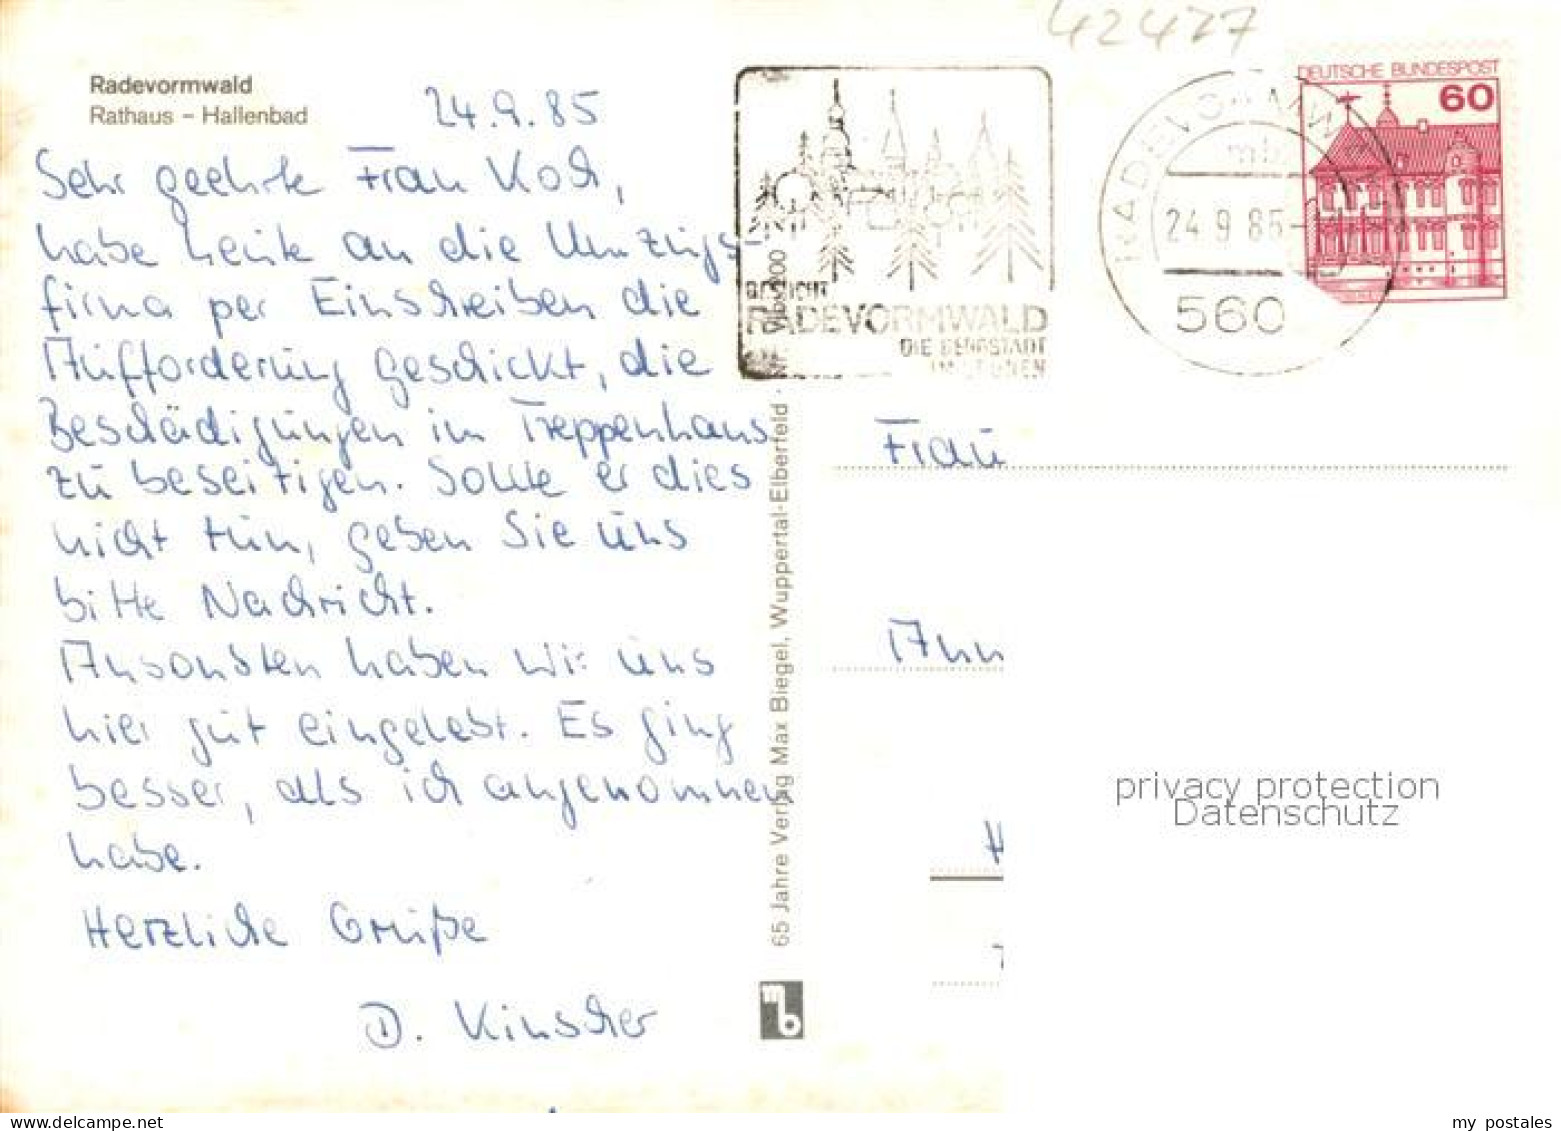 42427
Radevormwald
Rathaus – Hallenbad
24.9.85
Sehr geehrte Frau Koch,
habe heute an die Umzugs-
firma per Einschreiben die
Aufforderung geschickt, die
Beschädigungen im Treppenhaus
zu beseitigen. Sollte er dies
nicht tun, geben Sie uns
bitte Nachricht.
Ansonsten haben wir uns
hier gut eingelebt. Es ging
besser, als ich angenommen
habe.
Herzliche Grüße
D. Kinscher
65 Jahre Verlag Max Biegel, Wuppertal-Elberfeld
mb
BESUCHT
RADEVORMWALD
DIE BERGSTADT
IM GRÜNEN
RADEVORMWALD
mb
24.9.85
560
DEUTSCHE BUNDESPOST
60
Frau
privacy protection
Datenschutz
my postales